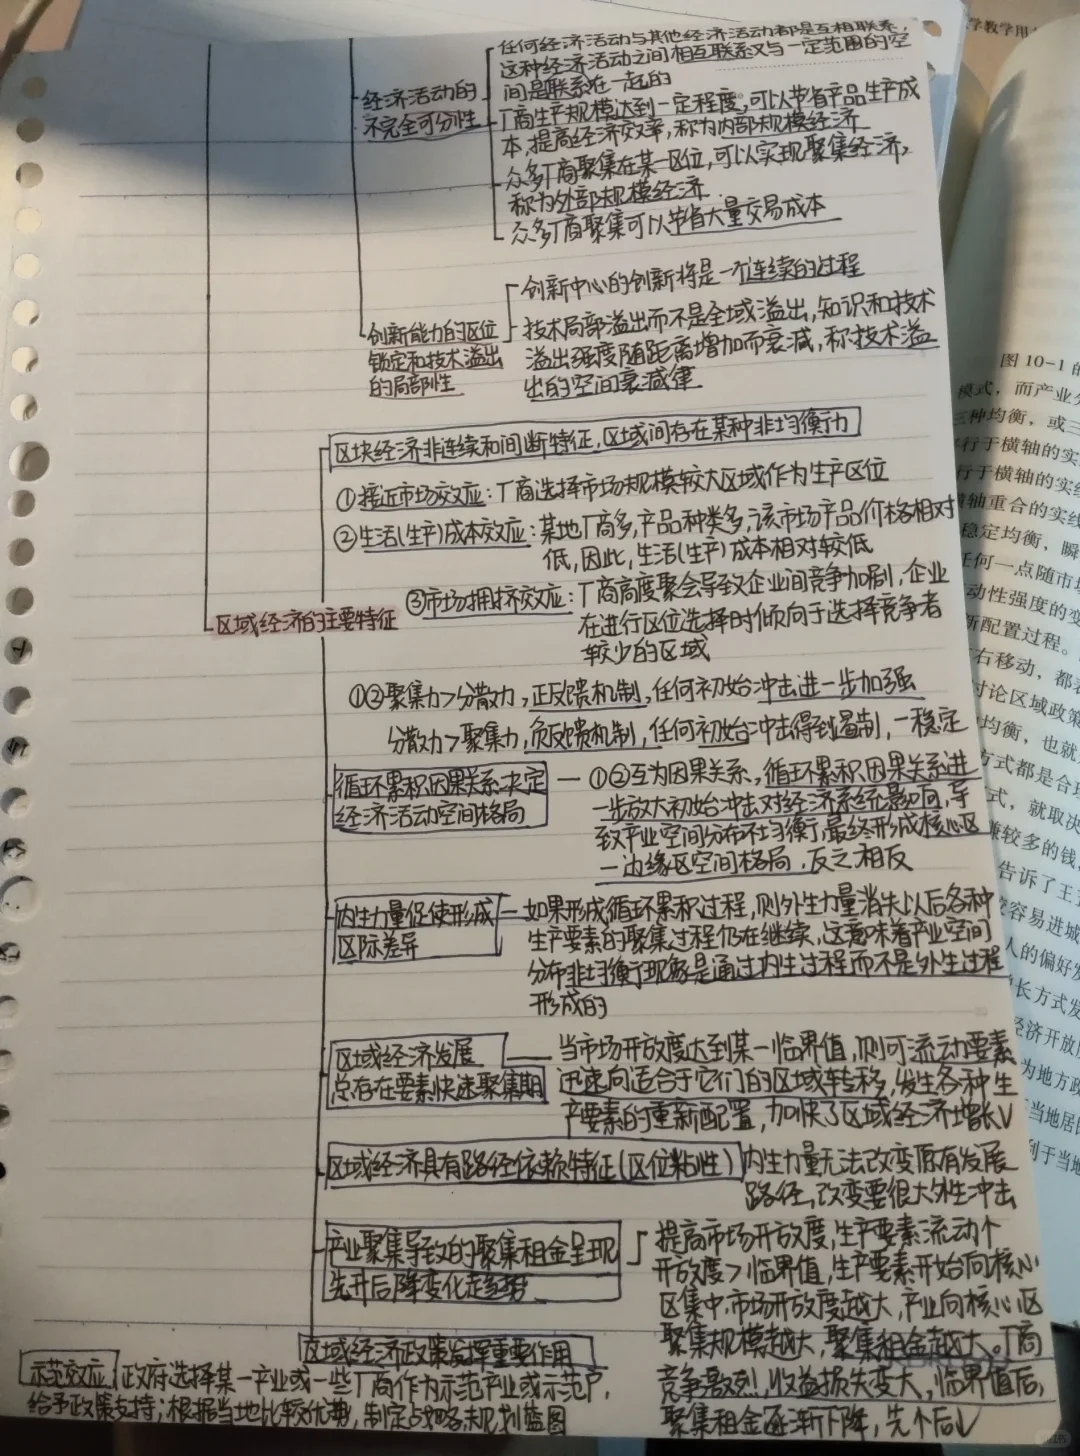 任何经济活动与其他经济活动都是互相联系,
这种经济活动之间相互联系又与一定范围的空
间是联系在一起的
经济活动的
不完全可分性
厂商生产规模达到一定程度,可以节省产品生产成
本,提高经济效率,称为内部规模经济
众多厂商聚集在某一区位,可以实现聚集经济,
称为外部规模经济
众多厂商聚集可以节省大量交易成本
创新能力的区位
锁定和技术溢出
的局部性
创新中心的创新将是一个连续的过程
技术局部溢出而不是全域溢出,知识和技术
溢出强度随距离增加而衰减,称技术溢
出的空间衰减律
区域经济的主要特征
区块经济非连续和间断特征,区域间存在某种非均衡力
①接近市场效应:厂商选择市场规模较大区域作为生产区位
②生活(生产)成本效应:某地厂商多,产品种类多,该市场产品价格相对
低,因此,生活(生产)成本相对较低
③市场拥挤效应:厂商高度聚会导致企业间竞争加剧,企业
在进行区位选择时倾向于选择竞争者
较少的区域
①②聚集力>分散力,正反馈机制,任何初始冲击进一步加强
分散力>聚集力,负反馈机制,任何初始冲击得到遏制,一稳定
循环累积因果关系决定
经济活动空间格局
①②互为因果关系、循环累积因果关系进
一步放大初始冲击对经济系统影响,导
致产业空间分布不均衡,最终形成核心区
一边缘区空间格局,反之相反
内生力量促使形成
区际差异
如果形成循环累积过程,则外生力量消失以后各种
生产要素的聚集过程仍在继续,这意味着产业空间
分布非均衡现象是通过内生过程而不是外生过程
形成的
区域经济发展
总存在要素快速聚集期
当市场开放度达到某一临界值,则可流动要素
迅速向适合于它们的区域转移,发生各种生
产要素的重新配置,加快了区域经济增长V
区域经济具有路径依赖特征(区位粘性)
内生力量无法改变原有发展
路径,改变要很大外生冲击
产业聚集导致的聚集租金呈现
先升后降变化走趋势
提高市场开放度,生产要素流动个
开放度>临界值,生产要素开始向核心
区集中,市场开放度越大,产业向核心区
聚集规模越大,聚集租金越大。厂商
竞争激烈,收益损失变大,临界值后,
聚集租金逐渐下降,先个后↓
区域经济政策发挥重要作用
示范效应 政府选择某一产业或一些厂商作为示范产业或示范户,
给予政策支持;根据当地比较优势,制定战略规划蓝图
学教学用
图10-1的
模式,而产业分
三种均衡,或三
行于横轴的实
行于横轴的实线
轴重合的实线
稳定均衡,瞬
任何一点随市场
动性强度的变
新配置过程。
右移动,都表
讨论区域政策
均衡,也就
方式都是合理
式,就取决
赚较多的钱
告诉了王
容易进城
人的偏好发
长方式发
经济开放度
为地方政
当地居民
利于当地